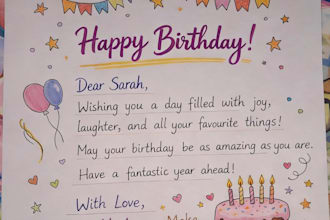 Happy Birthday!
Dear Sarah,
Wishing you a day filled with joy,
laughter, and all your favourite things!
May your birthday be as amazing as you are.
Have a fantastic year ahead!
With Love,